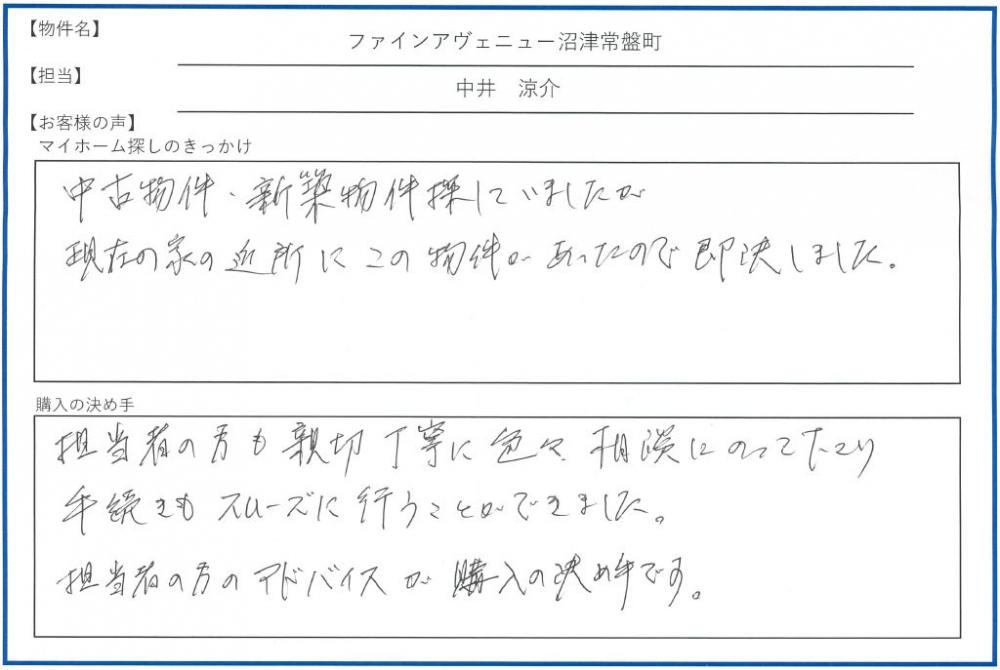 【物件名】
ファインアヴェニュー沼津常盤町
【担当】
中井　涼介
【お客様の声】
マイホーム探しのきっかけ
中古物件・新築物件探していましたが
現在の家の近所にこの物件があったので即決しました。
購入の決め手
担当者の方も親切丁寧に色々相談にのって下さり
手続きもスムーズに行うことができました。
担当者の方のアドバイスが購入の決め手です。